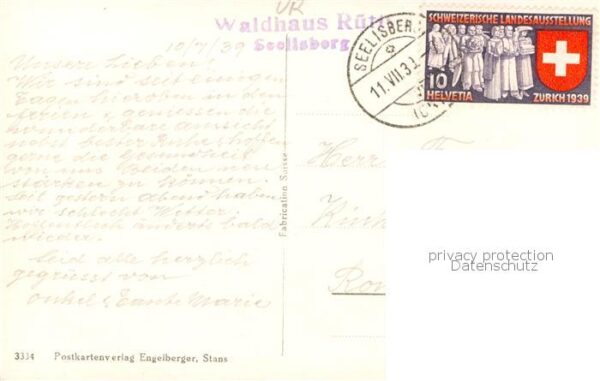 Waldhaus Rütli
Seelisberg
SEELISBERG
11.VII.39
SCHWEIZERISCHE LANDESAUSSTELLUNG
10
HELVETIA
ZÜRICH 1939
10/7/39
Unsere Lieben!
Wir sind seit einigen
Tagen hier oben in den
Ferien & geniessen die
wunderbare Aussicht
nebst bester Ruhe, hoffen
gerne die Gesundheit
von uns Beiden neu
stärken zu können.
Seit gestern Abend haben
wir schlecht Wetter.
Hoffentlich änderts bald
wieder.
Seid alle herzlich
gegrüsst von
Onkel & Tante Marie
Fabrication Suisse
Herr
privacy protection
Datenschutz
3334 Postkartenverlag Engelberger, Stans